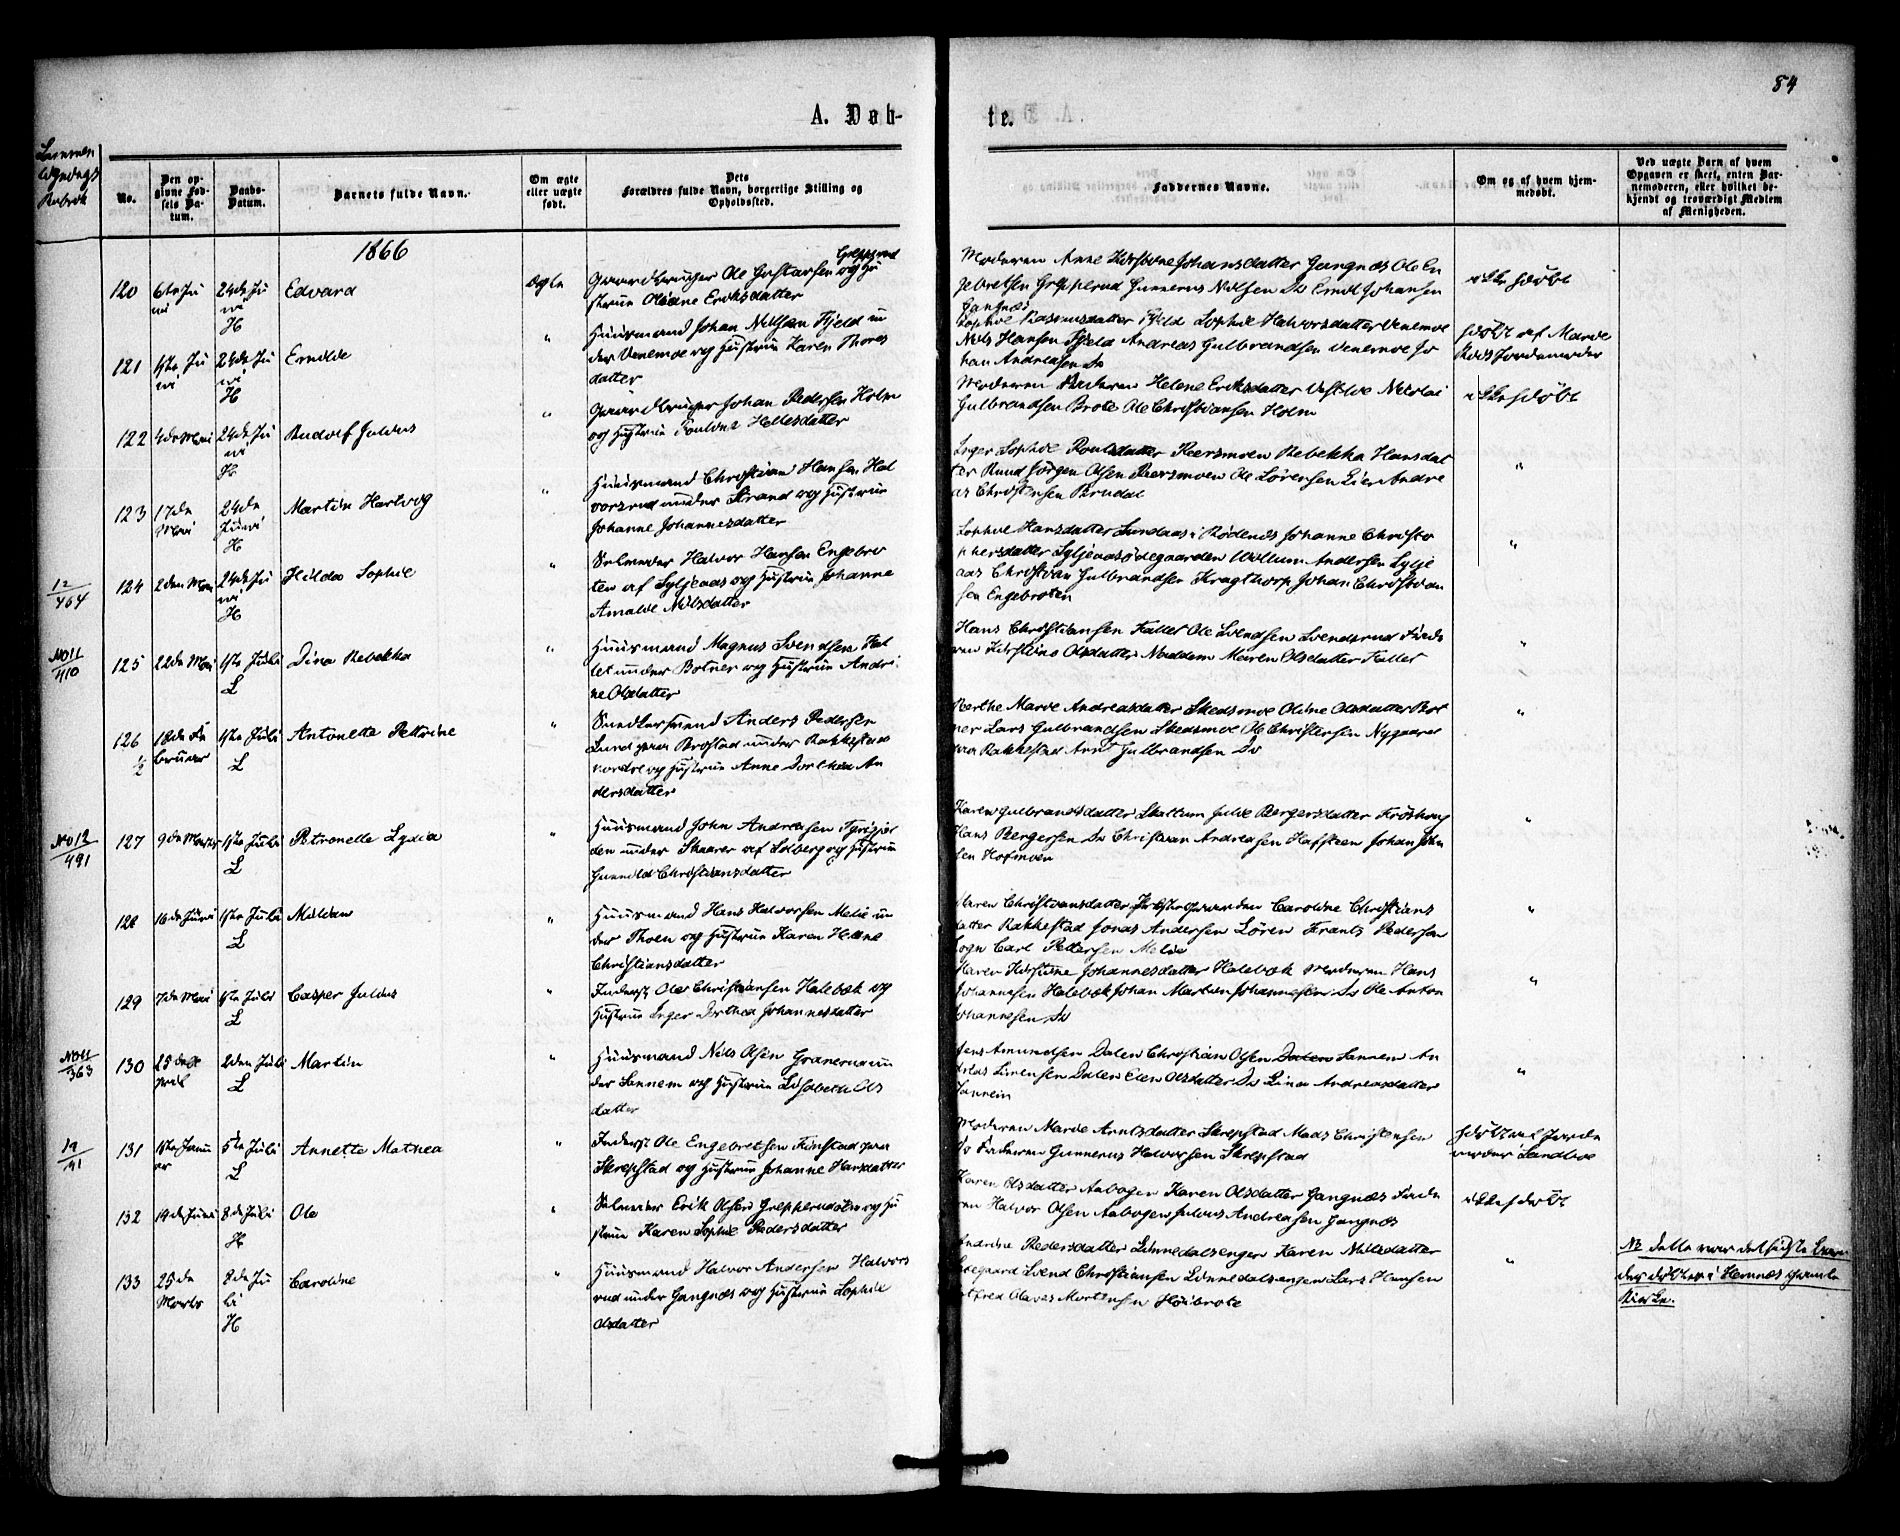 84
A. Døb-
te.
Sammen
Rubrik
No.
Den op-
givne Fød-
sels Da-
tum.
Daabs-
Datum.
Barnets fulde Navn.
Om ægte
eller uægte
født.
Dets
Forældres fulde Navn, borgerlige Stilling og
Opholdssted.
Faddernes Navne.
Om og af hvem hjem-
medøbt.
Ved uægte Barn af hvem
Opgaven er skeet, enten Bar-
nemoderen, eller hvilket be-
kjendt og troværdigt Medlem
af Menigheden.
1866
120
6te Ju
ni
24de Ju
ni
H
Edvard
ægte
Gaardbruger Ole Gustavsen og Hu
strue Oliane Eriksdatter
Moderen Anne Kirstine Johansdatter Gangnæs Ole En
gebretsen Gunnerus Nilsen Do Emil Johansen
Gangnæs
ikke hdøbt
121
1ste Ju
ni
24de Ju
ni
H
Emilie
"
Huusmand Johan Nilsen Fjeld un
der Venemoe og Hustrue Karen Thores
datter
Sophie Rasmusdatter Fjeld Sophie Halvorsdatter Venemoe
Niels Hansen Fjeld Andreas Gulbrandsen Venemoe Jo
han Andreasen Do
hdøbt af Marie
122
4de Mai
24de Ju
ni
H
Rudolf Julius
"
Gaardbruger Johan Pedersen Holm
og Hustrue Pauline Hellesdatter
Moderen Faderen Helene Eriksdatter Nikolai
Gulbrandsen Brote Ole Christiansen Holm
ikke hdøbt
123
17de
Mai
24de
Juni
H
Martin Hartvig
"
Huusmand Christian Hansen Hal
vorsrud under Strand og Hustrue
Johanne Johannesdatter
Inger Sophie Poulsdatter Rebekka Hansdat
ter Rud Jørgen Olsen Ole Sørensen Lier Andre
as Christensen Brudal
"
12
/464
124
2den Mai
24de Ju
ni
H
Hilda Sophie
"
Selveier Halvor Hansen Engebro
ten af Syljeaas og Hustrue Johanne
Amalie Nilsdatter
Sophie Hansdatter Sundaas i Rødenes Johanne Christo
phersdatter Syljeaasødegaarden Willum Andersen Sylje
aas Christian Gulbrandsen Kragtorp Johan Christian
sen Engebroten
"
No 11
/410
125
22de Mai
1ste Juli
L
Dina Rebekka
"
Huusmand Magnus Svendsen Fal
let under Botner og Hustrue Andri
ne Olsdatter
Hans Christiansen Fallet Ole Svendsen Svendsrud Fade
ren Kirstine Olsdatter Maren Olsdatter Fallet
"
126
½
18de Fe
bruar
1ste Juli
L
Antonette Pettrine
"
Snedkersvend Anders Pedersen
Lund paa Brostad under Rakkestad
nordre og Hustrue Anne Dorthea An
dersdatter
Berthe Marie Andreasdatter Skedsmoe Oline Olsdatter Bot
ner Lars Gulbrandsen Skedsmoe Ole Christensen Nygaard
paa Rakkestad Arnt Gulbrandsen Do
"
No 12
/491
127
9de Marts
1ste Juli
L
Petronelle Lydia
"
Huusmand John Andreasen
den under Skaarer af Solberg og Hustrue
Gunnild Christiansdatter
Karen Gulbrandsdatter Skattum Julie Bergersdatter Frøshaug
Hans Bergersen Do Christian Andreasen Haffsteen Johan John
sen Hofmoen
"
128
16de Juni
1ste Juli
L
Milian
"
Huusmand Hans Halvorsen Melie un
der Thoen og Hustrue Karen Helene
Christiansdatter
Maren Christiansdatter Prestegaarden Caroline Christians
datter Rakkestad Jonas Andersen Løren Frants Pedersen
Sogn Carl Pettersen Melie
"
129
7de Mai
1ste Juli
L
Casper Julius
"
Inderst Ole Christiansen Halebæk og
Hustrue Inger Dorthea Johannesdatter
Karen Kirstine Johannesdatter Halebæk Moderen Hans
Johannesen Halebæk Johan Martin Johannesen Do Ole Anton
Johannesen Do
"
No 11
/363
130
25de A
pril
2den Juli
L
Martin
"
Huusmand Nils Olsen un
der Sannem og Hustrue Lisabeth Ols
datter
Jens Amundsen Dalen Christian Olsen Dalen Sannem An
dreas Simensen Dalen Elen Olsdatter Do Lina Andreasdatter
Sannem
"
12
/41
131
1ste Janu
ar
5te Juli
L
Annette Mathea
"
Inderst Ole Engebretsen Finstad paa
Skrepstad og Hustrue Johanne Larsdatter
Moderen Marie Arntsdatter Skrepstad Mads Christensen
Do Faderen Gunnerus Halvorsen Skrepstad
132
14de Juni
8de Juli
H
Ole
"
Selveier Erik Olsen og Hu
strue Karen Sophie Pedersdatter
Karen Olsdatter Aabogen Karen Olsdatter Gangnæs Fade
ren Halvor Olsen Aabogen Julius Andreasen Gangnæs
ikke hdøbt
133
25de
Marts
8de Ju
li
H
Caroline
"
Huusmand Halvor Andersen Halvors
rud under Gangnæs og Hustrue Sophie
Olsdatter
Andrine Pedersdatter Linnedalsengen Karen Nilsdatter
Svend Christiansen Linnedalsengen Lars Hansen
Olaves Mortensen Høibrote
"
NB dette var det sidste Barn
der døbtes i Hemnæs gamle
Kirke.